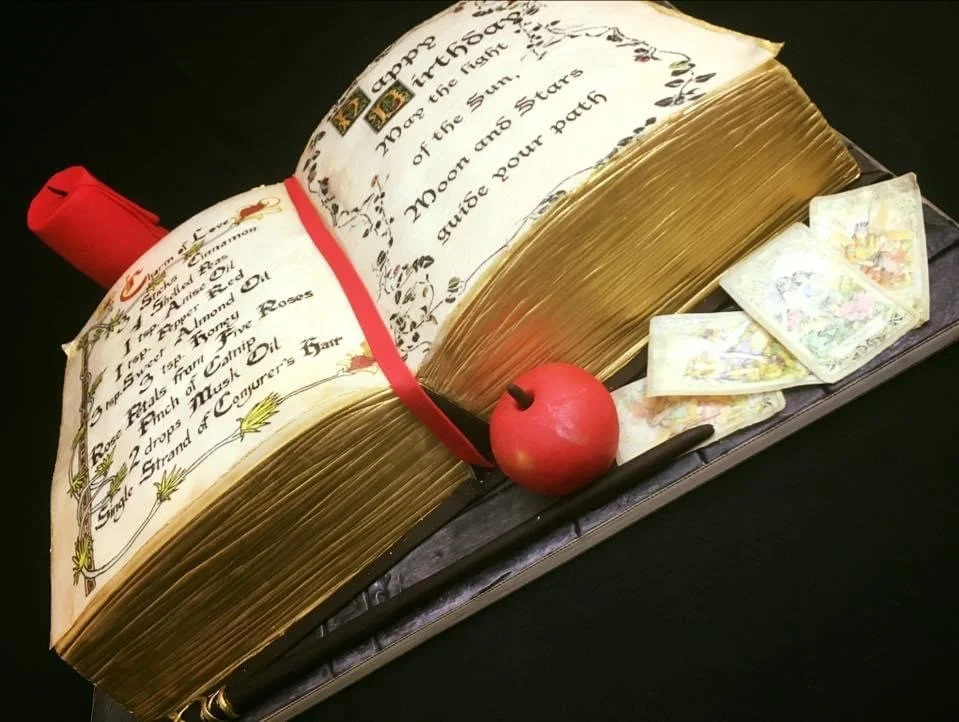 Charm of Love
Sticks Cinnamon
1 Shelled Peas
1 tsp. Anise Oil
1 tsp. Pepper Red
3 tsp. Sweet Almond Oil
3 tsp. Honey
Rose Petals from Five Roses
Pinch of Catnip
2 drops Musk Oil
Single Strand of Conjurer's Hair
Happy
Birthday
May the light
of the Sun,
Moon and Stars
guide your path